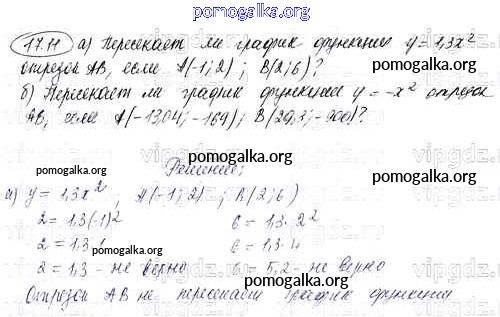 pomogalka.org
17.11 а) Пересекает ли график функции y = 1,3x²
отрезок AB, если A(-1; 2) ; B(2; 6)?
pomogalka.org
б) Пересекает ли график функции y = -x² отрезок
AB, если A(-13,04; -169); B(29,3; -900)?
pomogalka.org
Решение;
pomogalka.org
а) y = 1,3x² ; A(-1; 2) ; B(2; 6)
2 = 1,3(-1)² 6 = 1,3·2²
2 = 1,3·1 6 = 1,3·4
pomogalka.org
2 = 1,3 - не верно 6 = 5,2 - не верно
pomogalka.org
Отрезок AB не пересекает график функции